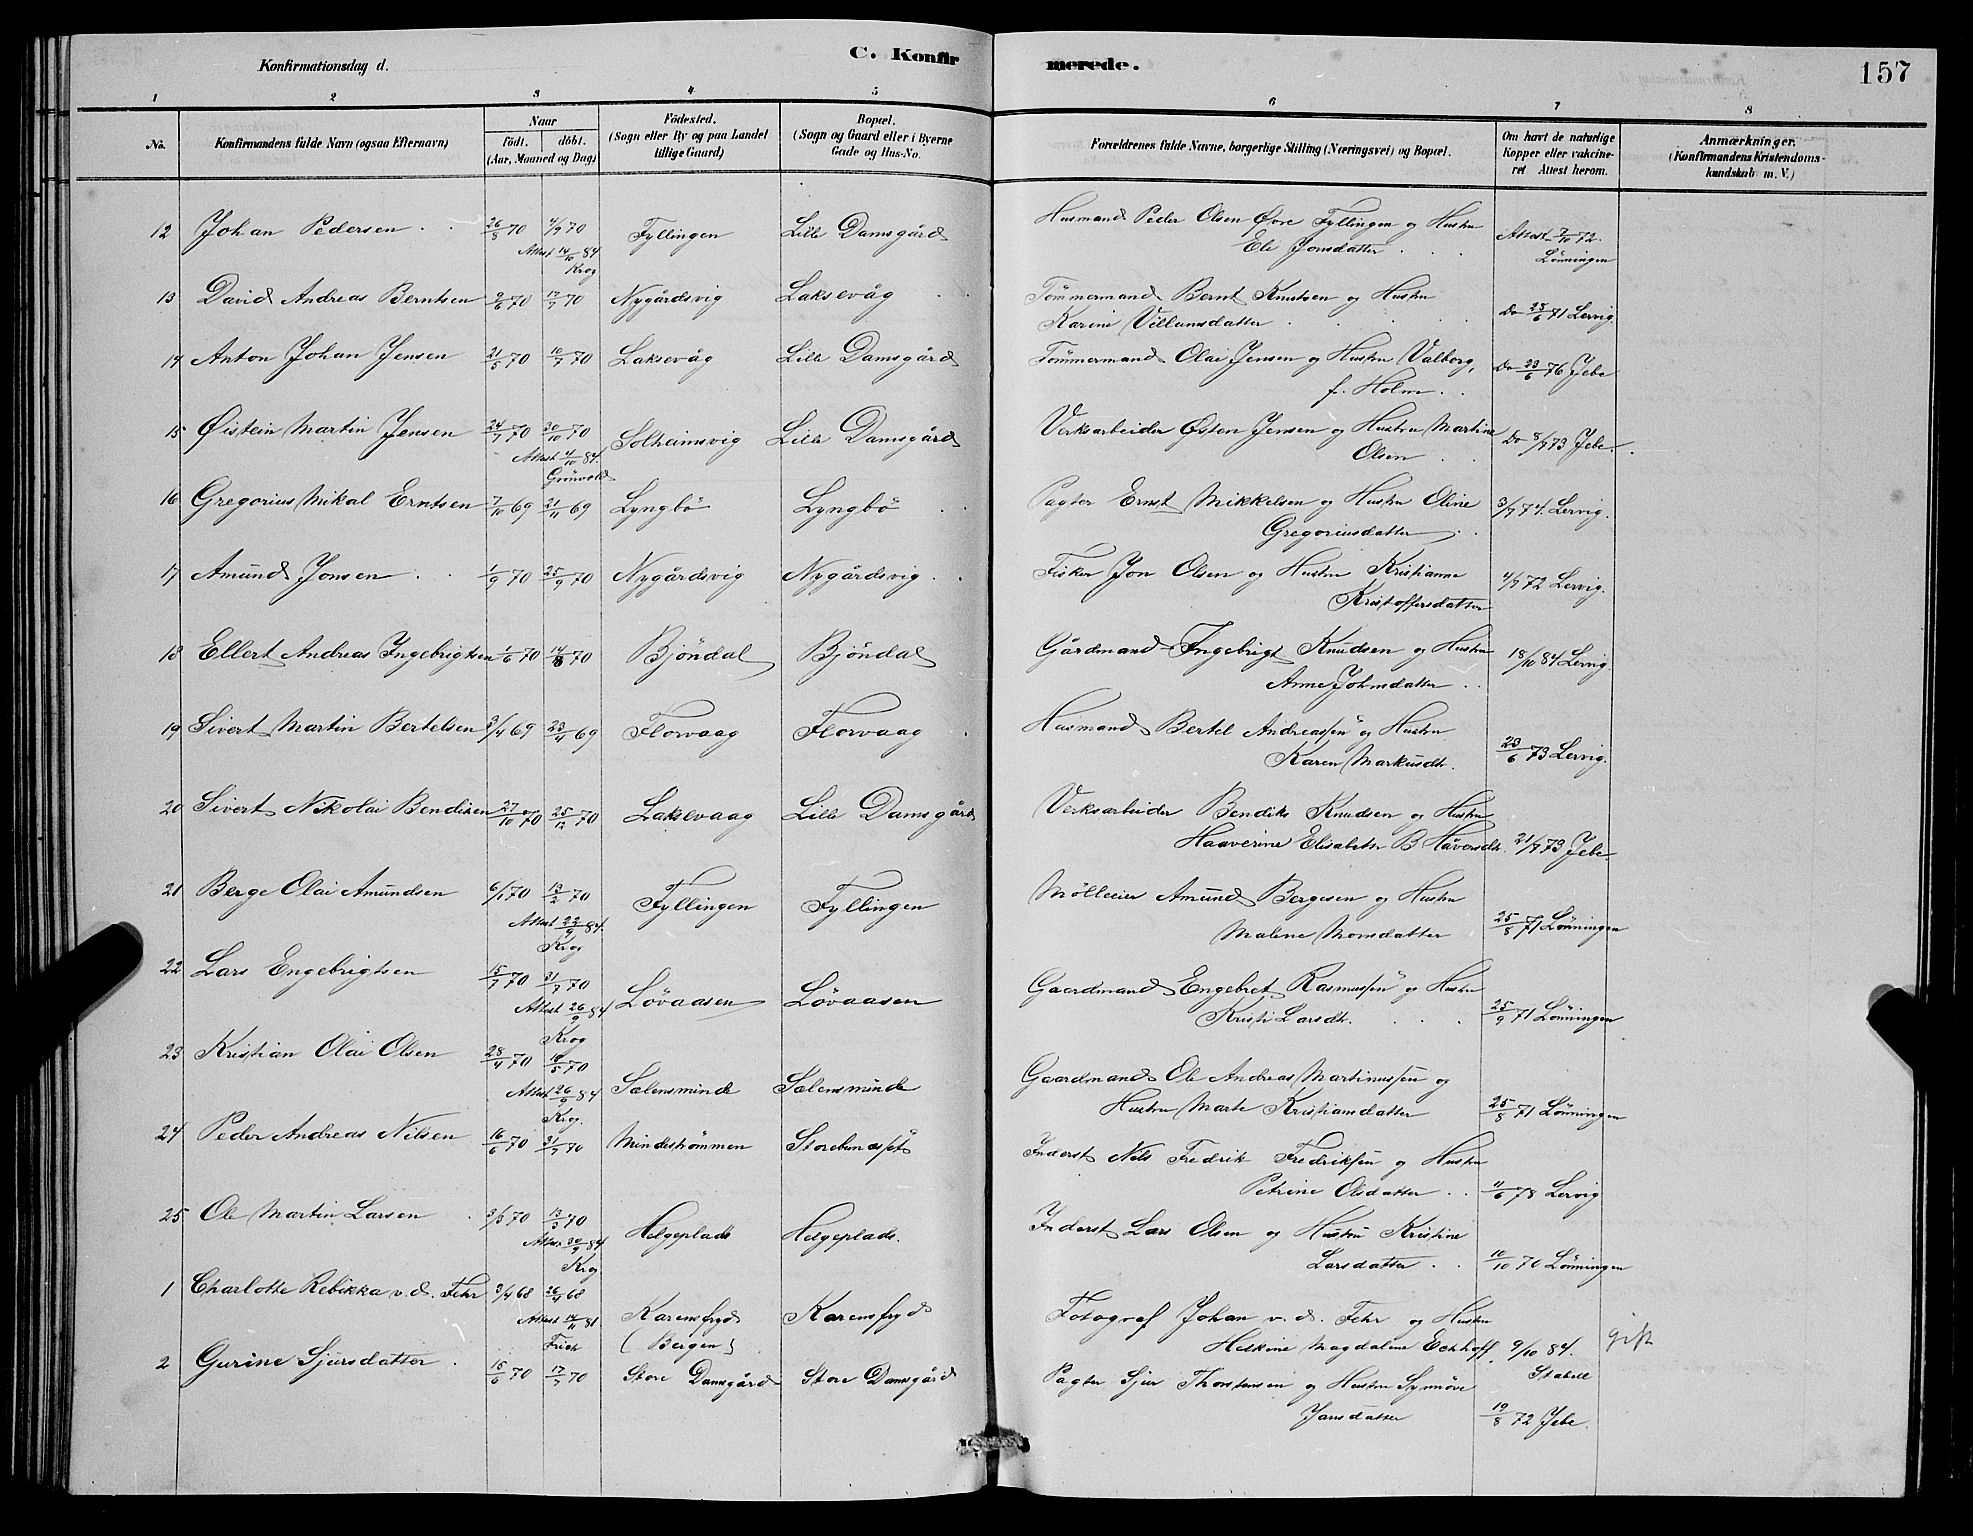 Konfirmationsdag d.
C. Konfir
merede.
157
1 2 3 4 5 6 7 8
No.
Konfirmandens fulde Navn (ogsaa Efternavn)
Naar
födt. döbt.
(Aar, Maaned og Dag)
Födested.
(Sogn eller By og paa Landet
tillige Gaard)
Bopæl.
(Sogn og Gaard eller i Byerne
Gade og Hus-No.
Forældrenes fulde Navne, borgerlige Stilling (Næringsvei) og Bopæl.
Om havt de naturlige
Kopper eller vakcine-
ret Attest herom.
Anmærkninger.
(Konfirmandens Kristendoms-
kundskab m. V.)
12 Johan Pedersen 26/8 70 4/9 70 Fyllingen Lille Damsgård Husmand Peder Olsen Øvre Fyllingen og Hustru
Attest 14/10 84 Eli Jonsdatter Attest 7/10 72.
Krog Lönningen
13 David Andreas Berntsen 9/6 70 17/7 70 Nygårdsvig Laksevåg Tömmermand Bernt Knutsen og Hustru
Karine Villumsdatter Do 25/6 71 Lervig.
14 Anton Johan Jensen 21/5 70 10/7 70 Laksevåg Lille Damsgård Tömmermand Olai Jensen og Hustru Valborg,
f. Holm Do 23/6 76 Jebe
15 Øistein Martin Jensen 24/7 70 30/10 70 Solheimsvig Lille Damsgård Verksarbeider Østen Jensen og Hustru Martine
Attest 4/10 84. Olsen Do 8/7 73 Jebe.
Grünvold
16 Gregorius Mikal Erntsen 7/10 69 21/11 69 Lyngbö Lyngbö Pagter Ernst Mikkelsen og Hustru Oline
Gregoriusdatter 3/7 74. Lervig.
17 Amund Jonsen 1/9 70 25/9 70 Nygårdsvig Nygårdsvig Fisker Jon Olsen og Hustru Kristianne
Kristoffersdatter 4/7 72 Lervig.
18 Ellert Andreas Ingebrigtsen 1/6 70 14/8 70 Bjöndal Bjöndal Gårdmand Ingebrigt Knudsen og Hustru
Anne Johnsdatter 18/10 84 Lervig.
19 Sivert Martin Bertelsen 3/4 69 23/4 69 Florvaag Florvaag Husmand Bertel Andreassen og Hustru
Karen Markusdtr. 23/6 73 Lervig.
20 Sivert Nikolai Bendiksen 27/10 70 25/12 70 Laksevaag Lille Damsgård Verksarbeider Bendiks Knudsen og Hustru
Haaverine Elisabeth B Håversdtr. 21/7 73 Jebe
21 Berge Olai Amundsen 6/1 70 13/2 70 Fyllingen Fyllingen Mölleier Amund Bergesen og Hustru
Attest 22/9 84. Malene Monsdatter 25/8 71 Lönningen
Krog
22 Lars Engebrigtsen 15/7 70 31/7 70 Lövaasen Lövaasen Gaardmand Engebret Rasmussen og Hustru
Attest 26/9 84 Kristi Larsdtr. 25/9 71 Lönningen
Krog
23 Kristian Olai Olsen 28/4 70 15/5 70 Sælensminde Sælensminde Gaardmand Ole Andreas Martinussen og
Attest 26/9 84 Hustru Marte Kristiansdatter 25/8 71 Lönningen
Krog.
24 Peder Andreas Nilsen 16/6 70 31/7 70 Mindeströmmen Inderst Nils Fredrik Fredriksen og Hustru
Petrine Olsdatter 11/6 78 Lervig
25 Ole Martin Larsen 3/3 70 13/3 70 Helgeplads Helgeplads. Inderst Lars Olsen og Hustru Kristine
Attest 30/9 84 Larsdatter 10/10 70 Lönningen
Krog
1 Charlotte Rebikka v.d. Fehr 3/4 68 26/4 68 Karensfryd Karensfryd Fotograf Johan v. d. Fehr og Hustru
Attest 14/11 81 (Bergen) Magdalene Eckhoff. 9/10 84. gift
Stabell
2 Gurine Sjursdatter 15/6 70 17/7 70 Store Damsgård Store Damsgård Pagter Sjur Thorstensen og Hustru Synnöve
Jansdatter 19/8 72 Jebe.